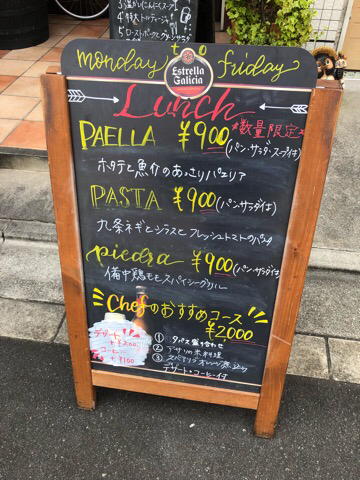 5 ローストポークとグリーンサラダ
monday to friday
Estrella
Galicia
Lunch
PAELLA ¥900 *数量限定*
(パン・サラダ・スープ付)
ホタテと魚介のあっさりパエリア
PASTA ¥900 (パン・サラダ付)
九条ネギとシラスとフレッシュトマトのパスタ
piedra ¥900 (パン・サラダ付)
備中鶏ももスパイシーグリル
Chefのおすすめコース
¥2000
① タパス盛り合わせ
②
③
デザート・コーヒー付
デザート
+¥200
コーヒー
+¥100